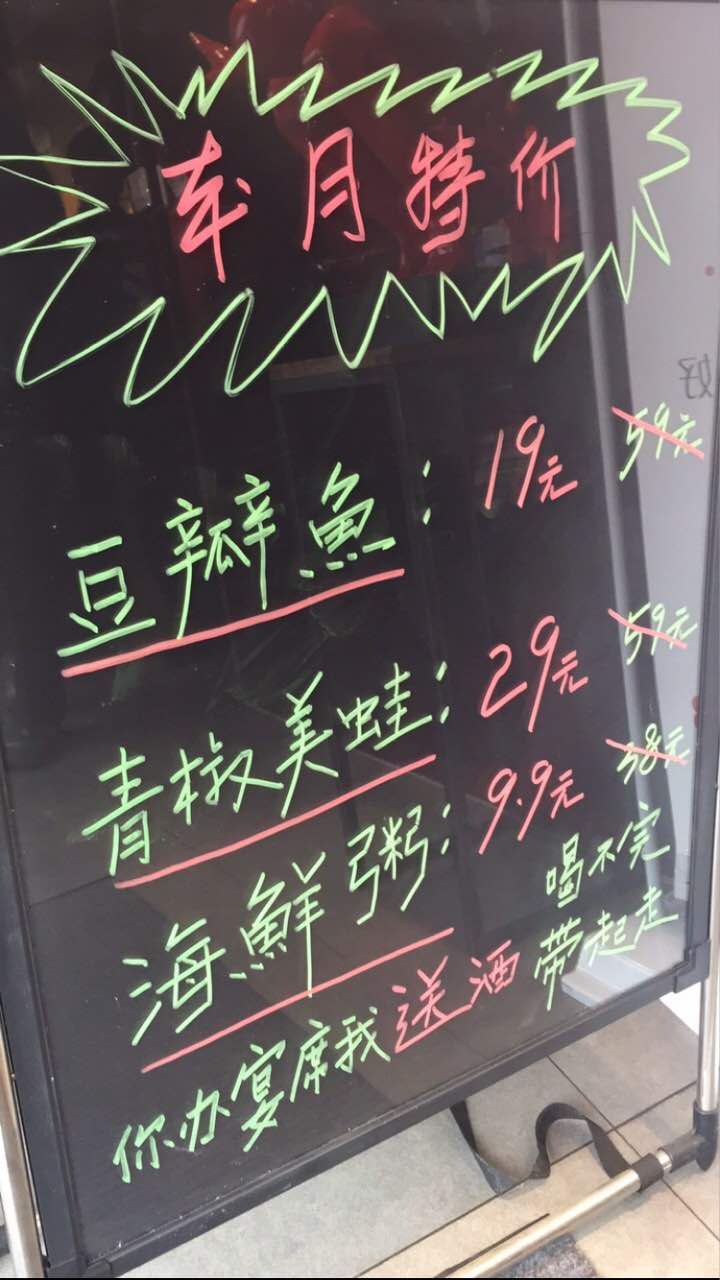 本月特价
豆瓣魚：19元 59元
青椒美蛙：29元 59元
海鮮粥：9.9元 38元
你办宴席我送酒 喝不完
带起走
好